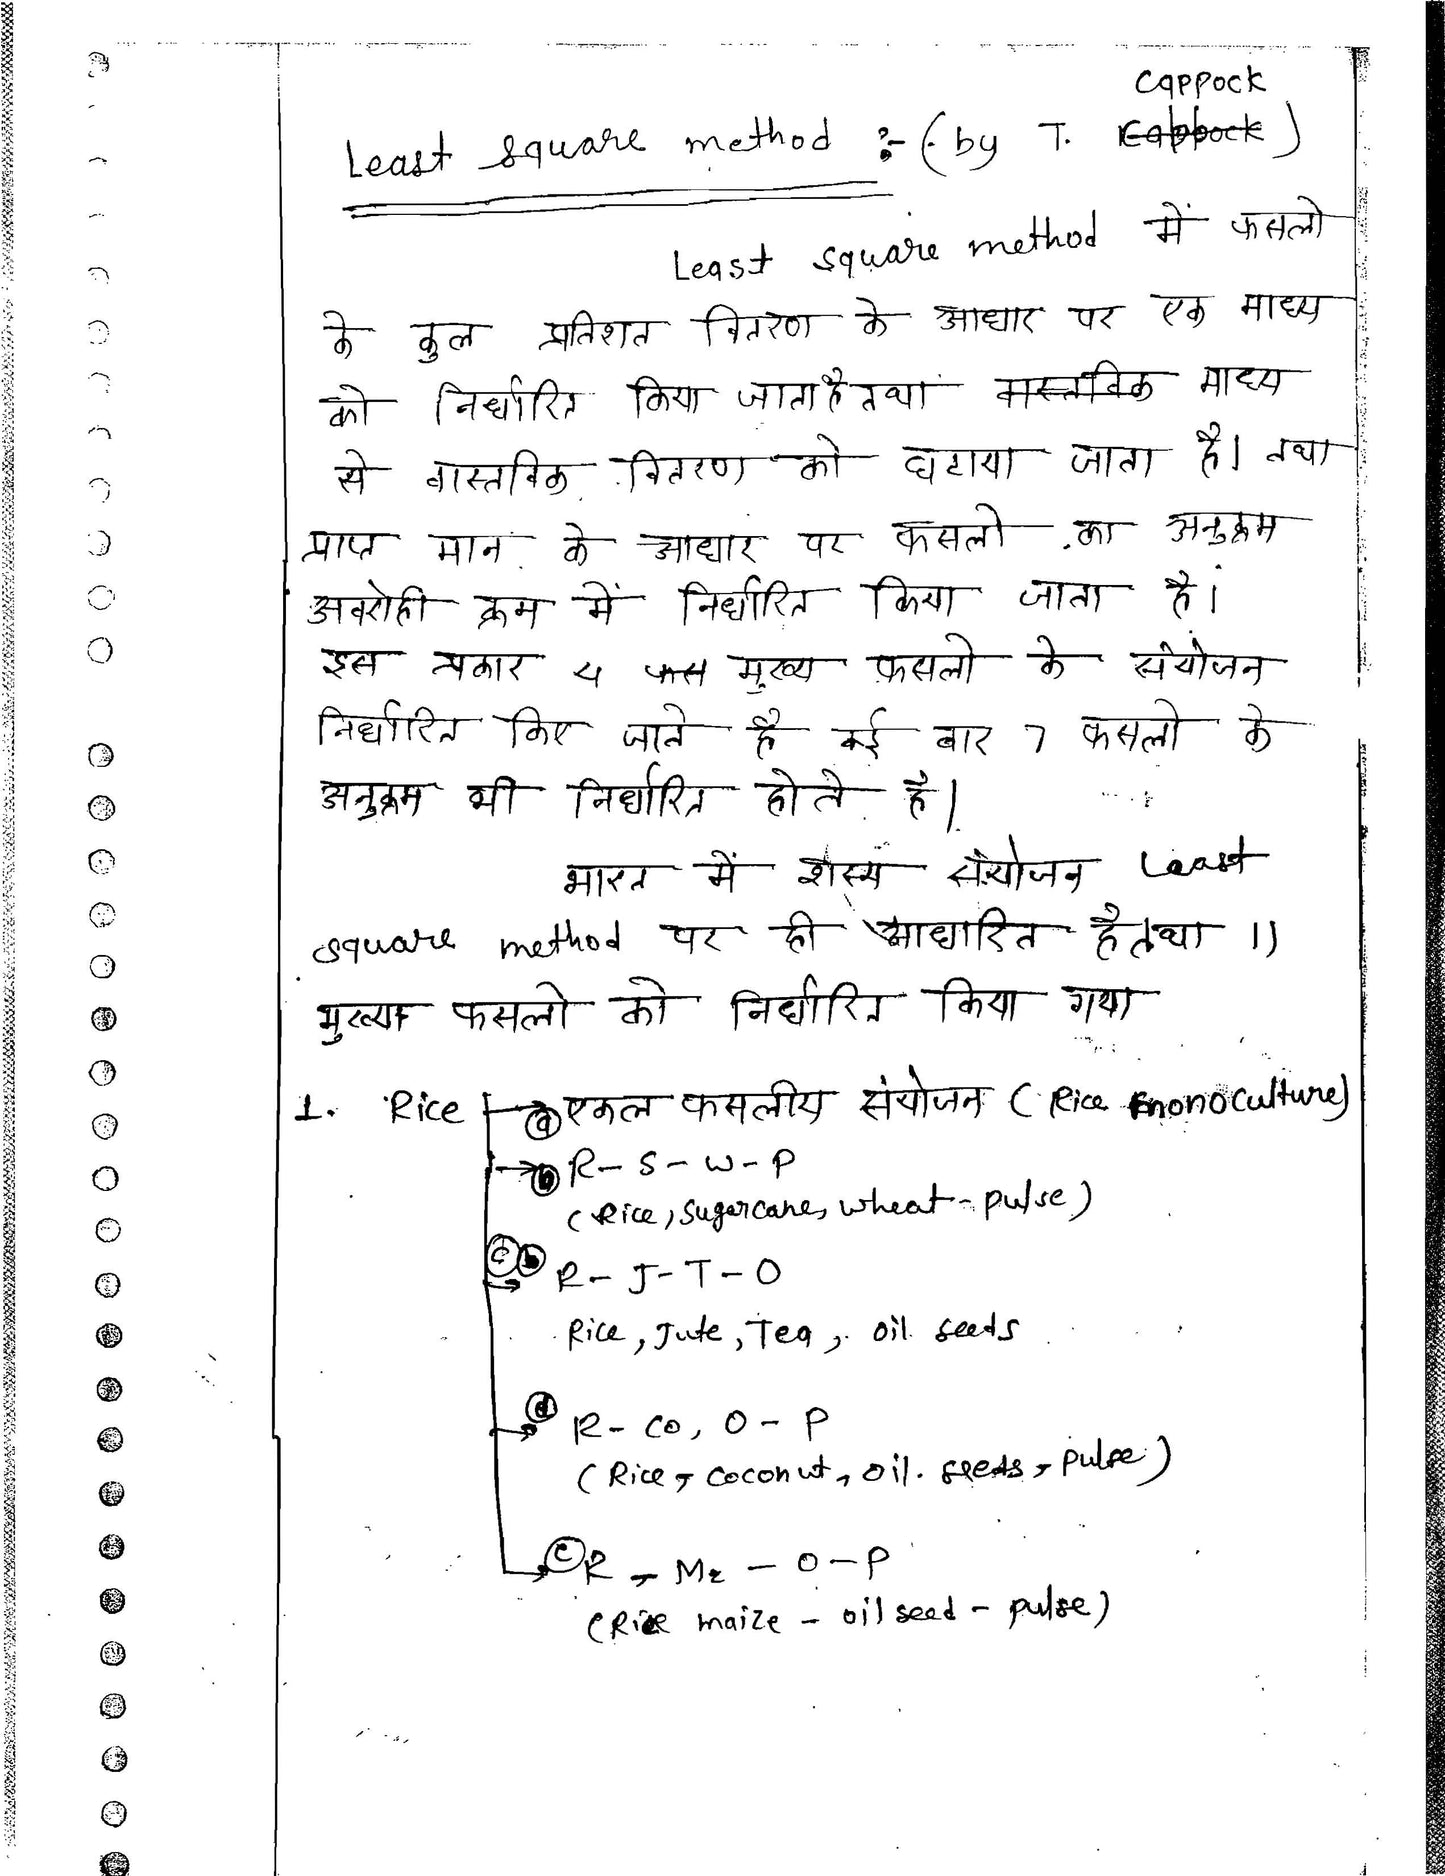 Cappock
Least square method :- (by T. Cappock)
Least square method में फसलो
के कुल प्रतिशत वितरण के आधार पर एक माध्य
को निर्धारित किया जाता है तथा वास्तविक माध्य
से वास्तविक वितरण को घटाया जाता है। तथा
प्राप्त मान के आधार पर फसलो का अनुक्रम
अवरोही क्रम में निर्धारित किया जाता है।
इस प्रकार 4 मुख्य फसलो के संयोजन
निर्धारित किए जाते है कई बार 7 फसलो के
अनुक्रम भी निर्धारित होते है।
भारत में शस्य संयोजन Least
square method पर ही आधारित है तथा 11
मुख्य फसलो को निर्धारित किया गया
1. Rice → (a) एकल फसलीय संयोजन (Rice monoculture)
→ (b) R - S - W - P
(Rice, Sugercane, wheat - pulse)
(c) (b) → R - J - T - O
Rice, Jute, Tea, oil seeds
→ (d) R - Co, O - P
(Rice, coconut, oil. seeds, pulse)
→ (e) R - Mz - O - P
(Rice maize - oil seed - pulse)